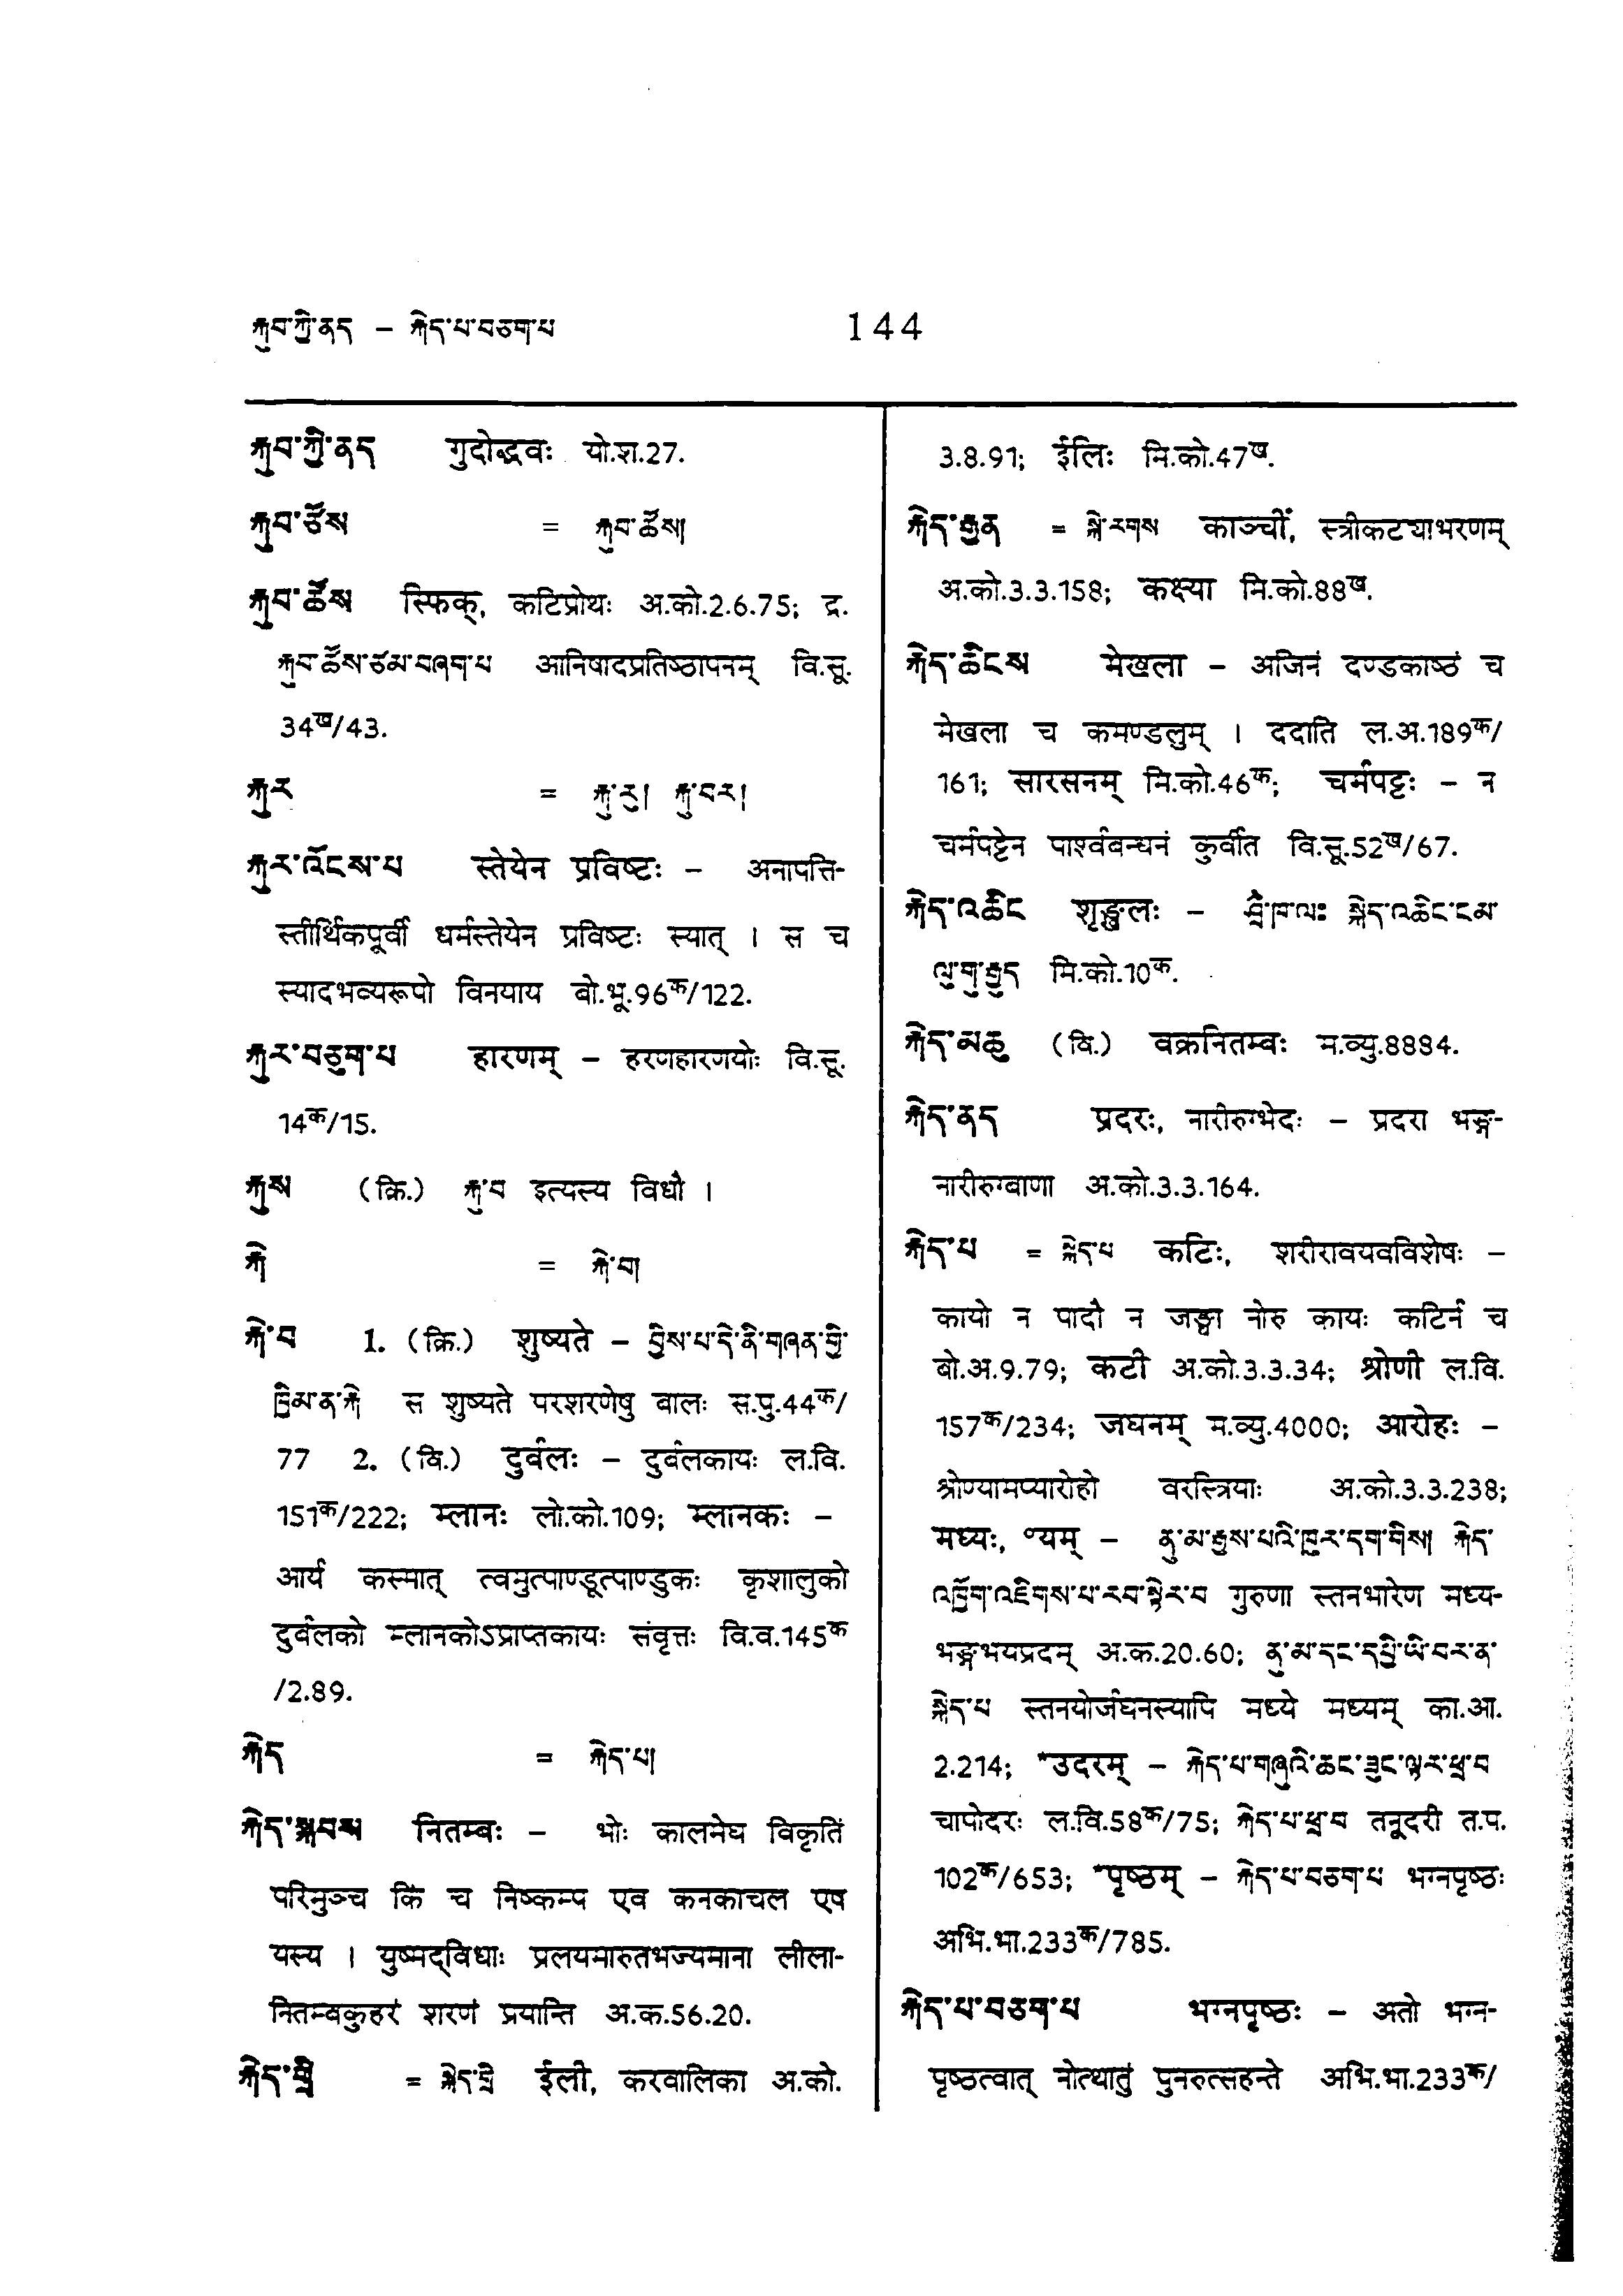 རྐུབ་ཀྱི་ནད – རྐེད་པ་བཅག་པ 144
རྐུབ་ཀྱི་ནད गुदोद्भवः यो.श.27.
རྐུབ་ཙོས = རྐུབ་ཚོས།
རྐུབ་ཚོས स्फिक्, कटिप्रोथः अ.को.2.6.75; द्र.
རྐུབ་ཚོས་ཙམ་བཞག་པ आनिषादप्रतिष्ठापनम् वि.सू.
34ख/43.
རྐུར = རྐུ་རུ། རྐུ་བར།
རྐུར་འོངས་པ स्तेयेन प्रविष्टः – अनापत्ति-
स्तीर्थिकपूर्वी धर्मस्तेयेन प्रविष्टः स्यात् । स च
स्यादभव्यरूपो विनयाय बो.भू.96क/122.
རྐུར་བཅུག་པ हारणम् – हरणहारणयोः वि.सू.
14क/15.
རྐུས (क्रि.) རྐུ་བ इत्यस्य विधौ ।
རྐེ = རྐེ་བ།
རྐེ་བ 1. (क्रि.) शुष्यते – བྱིས་པ་དེ་ནི་གཞན་གྱི་
ཁྲིམ་ན་རྐེ स शुष्यते परशरणेषु बालः स.पु.44क/
77 2. (वि.) दुर्बलः – दुर्बलकायः ल.वि.
151क/222; म्लानः लो.को.109; म्लानकः –
आर्य कस्मात् त्वमुत्पाण्डूत्पाण्डुकः कृशालुको
दुर्बलको म्लानकोऽप्राप्तकायः संवृत्तः वि.व.145क
/2.89.
རྐེད = རྐེད་པ།
རྐེད་སྐབས नितम्बः – भोः कालमेघ विकृतिं
परिमुञ्च किं च निष्कम्प एव कनकाचल एष
यस्य । युष्मद्विधाः प्रलयमारुतभज्यमाना लीला-
नितम्बकुहरं शरणं प्रयान्ति अ.क.56.20.
རྐེད་གྲི = སྐེད་གྲི ईली, करवालिका अ.को.
3.8.91; ईलिः मि.को.47ख.
རྐེད་རྒྱན = སྐེ་རགས काञ्ची, स्त्रीकट्याभरणम्
अ.को.3.3.158; कक्ष्या मि.को.88ख.
རྐེད་ཆིངས मेखला – अजिनं दण्डकाष्ठं च
मेखला च कमण्डलुम् । ददाति ल.अ.189क/
161; सारसनम् मि.को.46क; चर्मपट्टः – न
चर्मपट्टेन पार्श्वबन्धनं कुर्वीत वि.सू.52ख/67.
རྐེད་འཆིང शृङ्खलः – ཤྲྀཾ་ཁ་ལཿ སྐེད་འཆིང་ངམ་
ལུ་གུ་རྒྱུད मि.को.10क.
རྐེད་མཆུ (वि.) वक्रनितम्बः म.व्यु.8884.
རྐེད་ནད प्रदरः, नारीरुग्भेदः – प्रदरा भङ्ग-
नारीरुग्बाणा अ.को.3.3.164.
རྐེད་པ = སྐེད་པ कटिः, शरीरावयवविशेषः –
कायो न पादौ न जङ्घा नोरु कायः कटिर्न च
बो.अ.9.79; कटी अ.को.3.3.34; श्रोणी ल.वि.
157क/234; जघनम् म.व्यु.4000; आरोहः –
श्रोण्यामप्यारोहो वरस्त्रियाः अ.को.3.3.238;
मध्यः, ०यम् – ནུ་མ་རྒྱས་པའི་ཁུར་དག་གིས། རྐེད་
འཁྲོག་འཇིགས་པ་རབ་སྟེར་བ गुरुणा स्तनभारेण मध्य-
भङ्गभयप्रदम् अ.क.20.60; ནུ་མ་དང་དཔྱི་ཡི་བར་ན་
སྐེད་པ स्तनयोर्जघनस्यापि मध्ये मध्यम् का.आ.
2.214; *उदरम् – རྐེད་པ་གཞུའི་ཆང་ཟུང་ལྟར་ཕྲ་བ
चापोदरः ल.वि.58क/75; རྐེད་པ་ཕྲ་བ तनूदरी त.प.
102क/653; *पृष्ठम् – རྐེད་པ་བཅག་པ भग्नपृष्ठः
अभि.भा.233क/785.
རྐེད་པ་བཅག་པ भग्नपृष्ठः – अतो भग्न-
पृष्ठत्वात् नोत्थातुं पुनरुत्सहन्ते अभि.भा.233क/